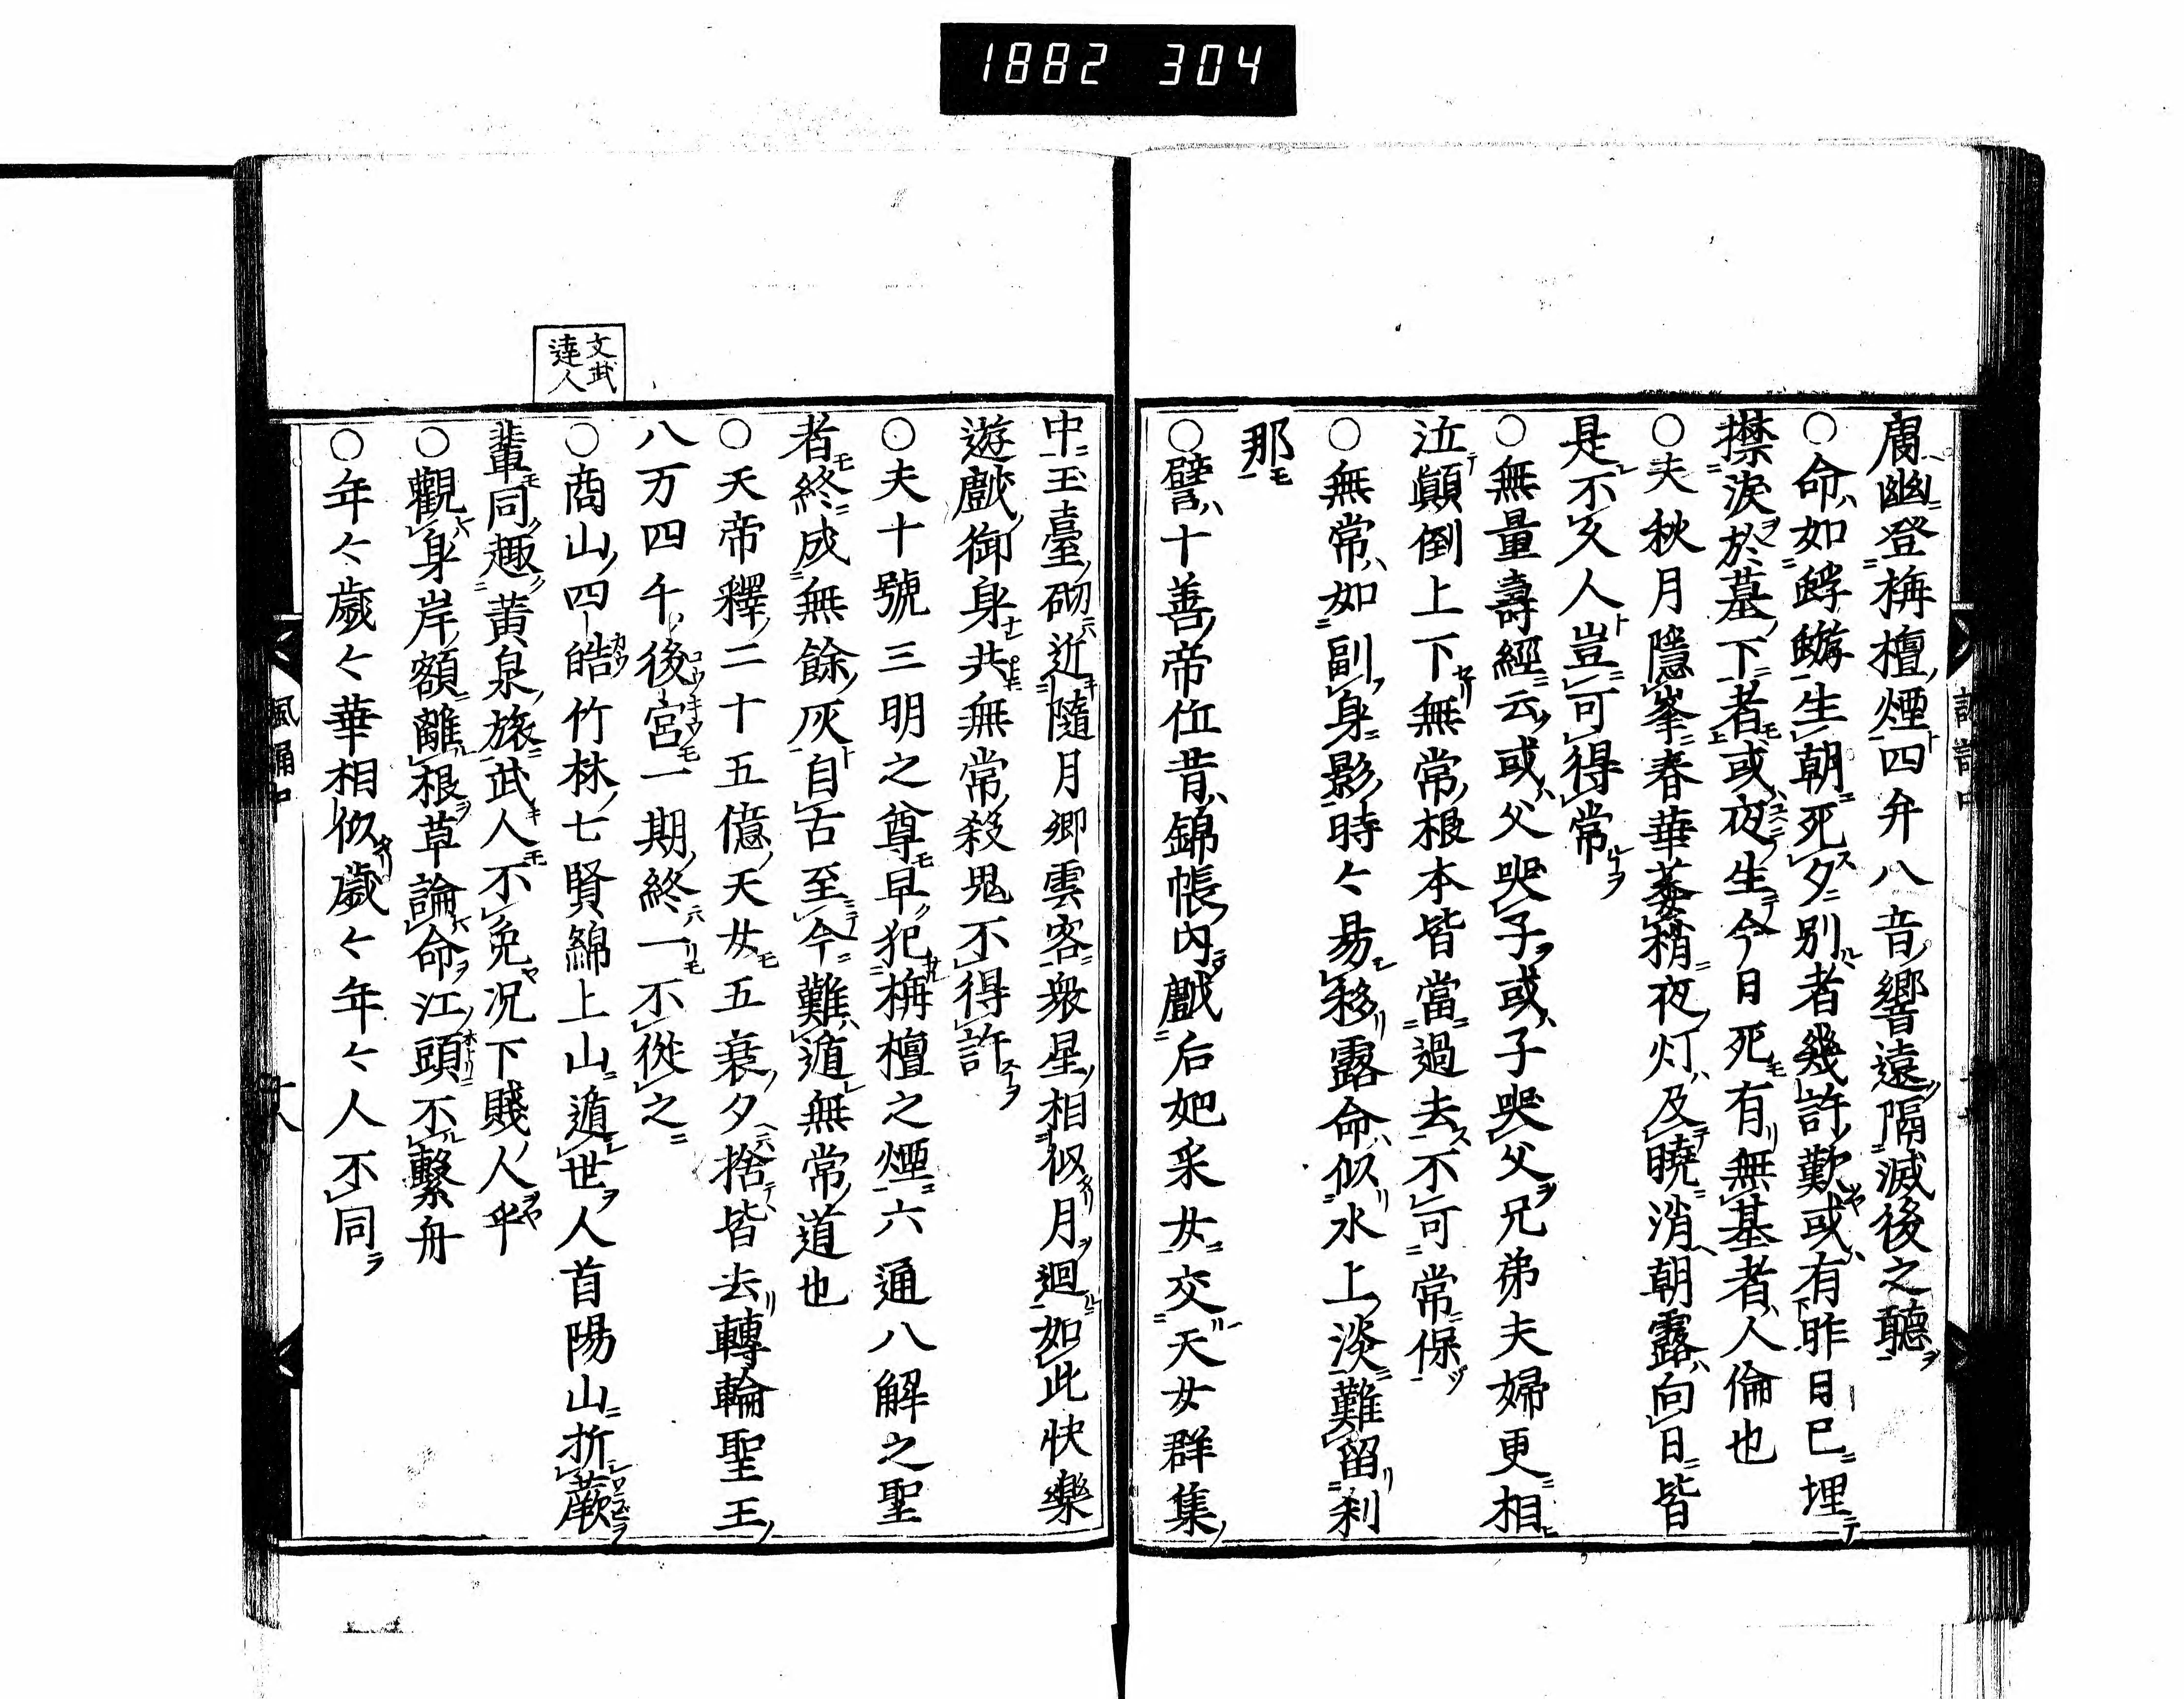 1882 304
膚幽登栴檀煙四弁八音響遠隔滅後之聽
○命如蜉蝣生朝死夕別者幾許歎或有昨日已埋
擽淚於墓下者或夜生今日死有無墓者人倫也
○夫秋月隱峯春華萎稍夜灯及曉消朝露向日皆
是不久人豈可得常
○無量壽經云或父哭子或子哭父兄弟夫婦更相
泣顚倒上下無常根本皆當過去不可常保
○無常如副身影時々易移露命似水上淡難留刹
那
○譬十善帝位昔錦帳內戲后妃采女交天女群集
中玉臺砌近隨月卿雲客衆星相似月廻如此快樂
遊戲御身共無常殺鬼不得許
○夫十號三明之尊早犯栴檀之煙六通八解之聖
者終成無餘灰自古至今難遁無常道也
○天帝釋二十五億天女五衰夕捨皆去轉輪聖王
八万四千後宮一期終一不從之
文武
達人
○商山四皓竹林七賢綿上山遁世人首陽山折蕨
輩同趣黃泉旅武人不免況下賤人乎
○觀身岸額離根草論命江頭不繫舟
○年々歲々華相似歲々年々人不同
風誦中